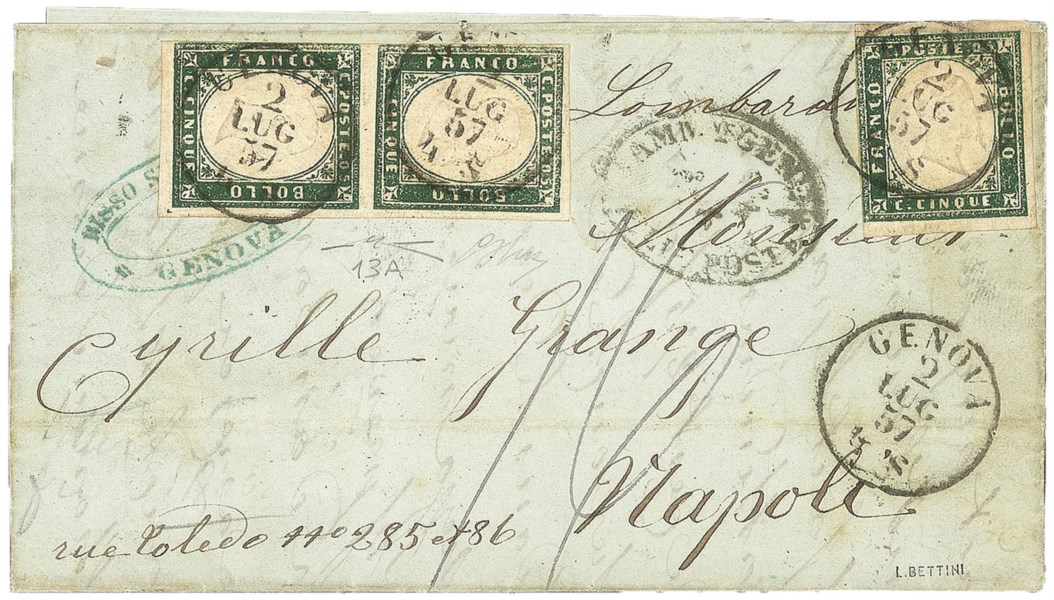 FRANCO
C. POSTE. 05
BOLLO
C. CINQUE
FRANCO
C. POSTE. 05
BOLLO
C. CINQUE
C. POSTE. 05
FRANCO
BOLLO
C. CINQUE
2
LUG
57
LUG
57
2
LUG
57
GENOVA
13A
Monsieur
Cyrille Grange
GENOVA
2
LUG
57
Napoli
rue Toledo no 285 et 86
L. BETTINI